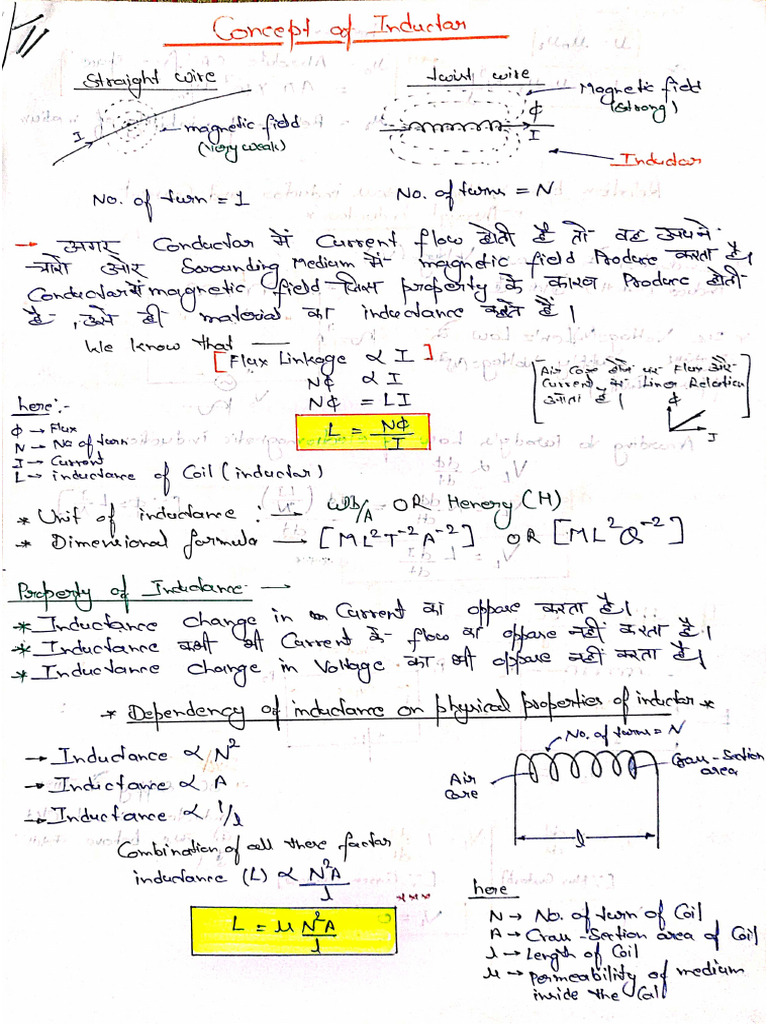 Concept of Inductor
Straight wire
I
magnetic field
(Very weak)
No. of turn = 1
twist wire
Magnetic field
(strong)
ϕ
I
Inductor
No. of turns = N
→ अगर Conductor में Current flow होती है तो वह अपने
चारो ओर Sorounding Medium में magnetic field Produce करता है।
Conductor में magnetic field जिस property के कारण Produce होती
है, उसे ही material का inductance कहते हैं।
We know that —
[Flux Linkage ∝ I]
Nϕ ∝ I
Nϕ = LI
L = Nϕ/I
[Air Core होने पर Flux और
Current में Liner Relation
आता है।]
ϕ
I
here:-
ϕ → Flux
N → No of turn
I → Current
L → inductance of Coil (inductor)
* Unit of inductance :→ Wb/A OR Henery (H)
* Dimensional formula → [ML²T⁻²A⁻²] OR [ML²Q⁻²]
Property of Inductance →
* Inductance change in Current का oppose करता है।
* Inductance कभी भी Current के flow का oppose नहीं करता है।
* Inductance change in Voltage का भी oppose नहीं करता है।
* Dependency of inductance on physical properties of inductor *
→ Inductance ∝ N²
→ Inductance ∝ A
→ Inductance ∝ 1/l
No. of turns = N
Air
core
Cross-Section
area
l
Combination of all there factor
inductance (L) ∝ N²A/l
***
L = μ N²A/l
here
N → No. of turn of Coil
A → Cross-Section area of Coil
l → Length of Coil
μ → Permeability of medium
inside the Coil